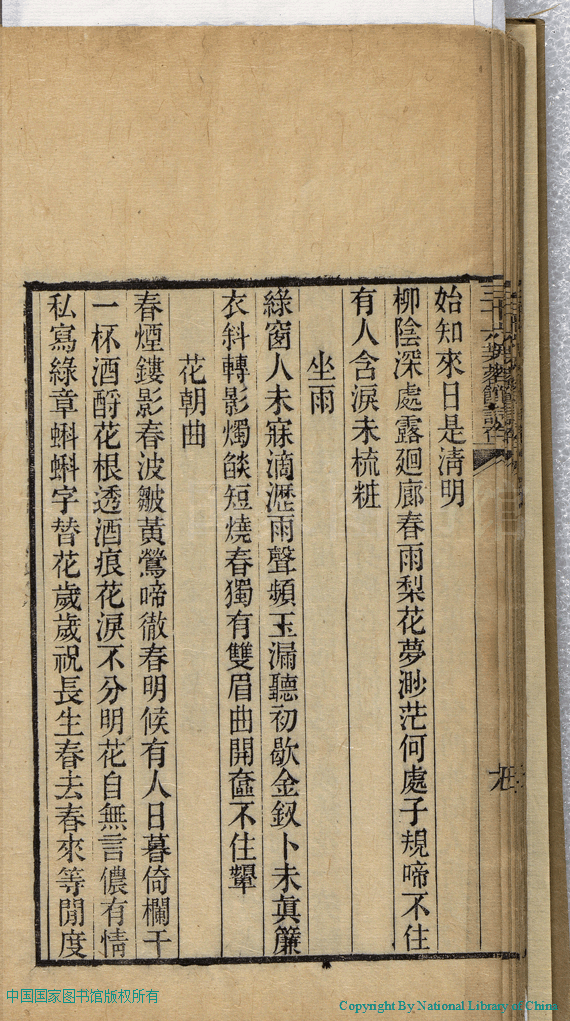 始知來日是淸明
柳陰深處露廻廊春雨梨花夢渺茫何處子規啼不住
有人含淚未梳粧
坐雨
綠窗人未寐滴瀝雨聲頻玉漏聽初歇金釵卜未眞簾
衣斜轉影燭燄短燒春獨有雙眉曲開奩不住顰
花朝曲
春煙鏤影春波皺黃鶯啼徹春明候有人日暮倚欄干
一杯酒酹花根透酒痕花淚不分明花自無言儂有情
私寫綠章蝌蝌字替花歲歲祝長生春去春來等閒度
中国国家图书馆版权所有
Copyright By National Library of China